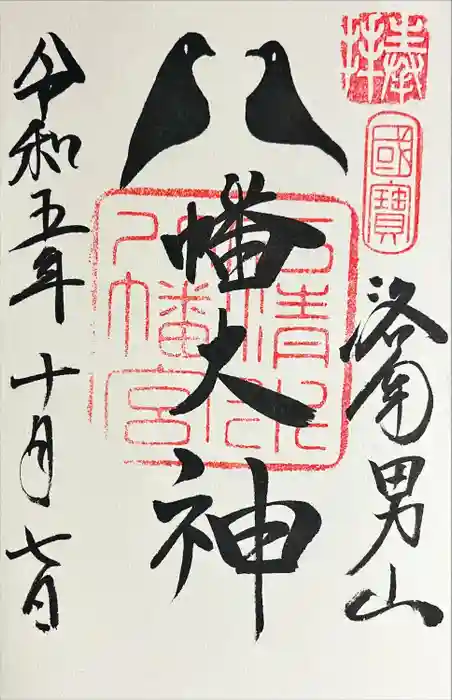 奉拝
國寶
洛南男山
八幡大神
石清水
八幡宮
令和五年十月七日